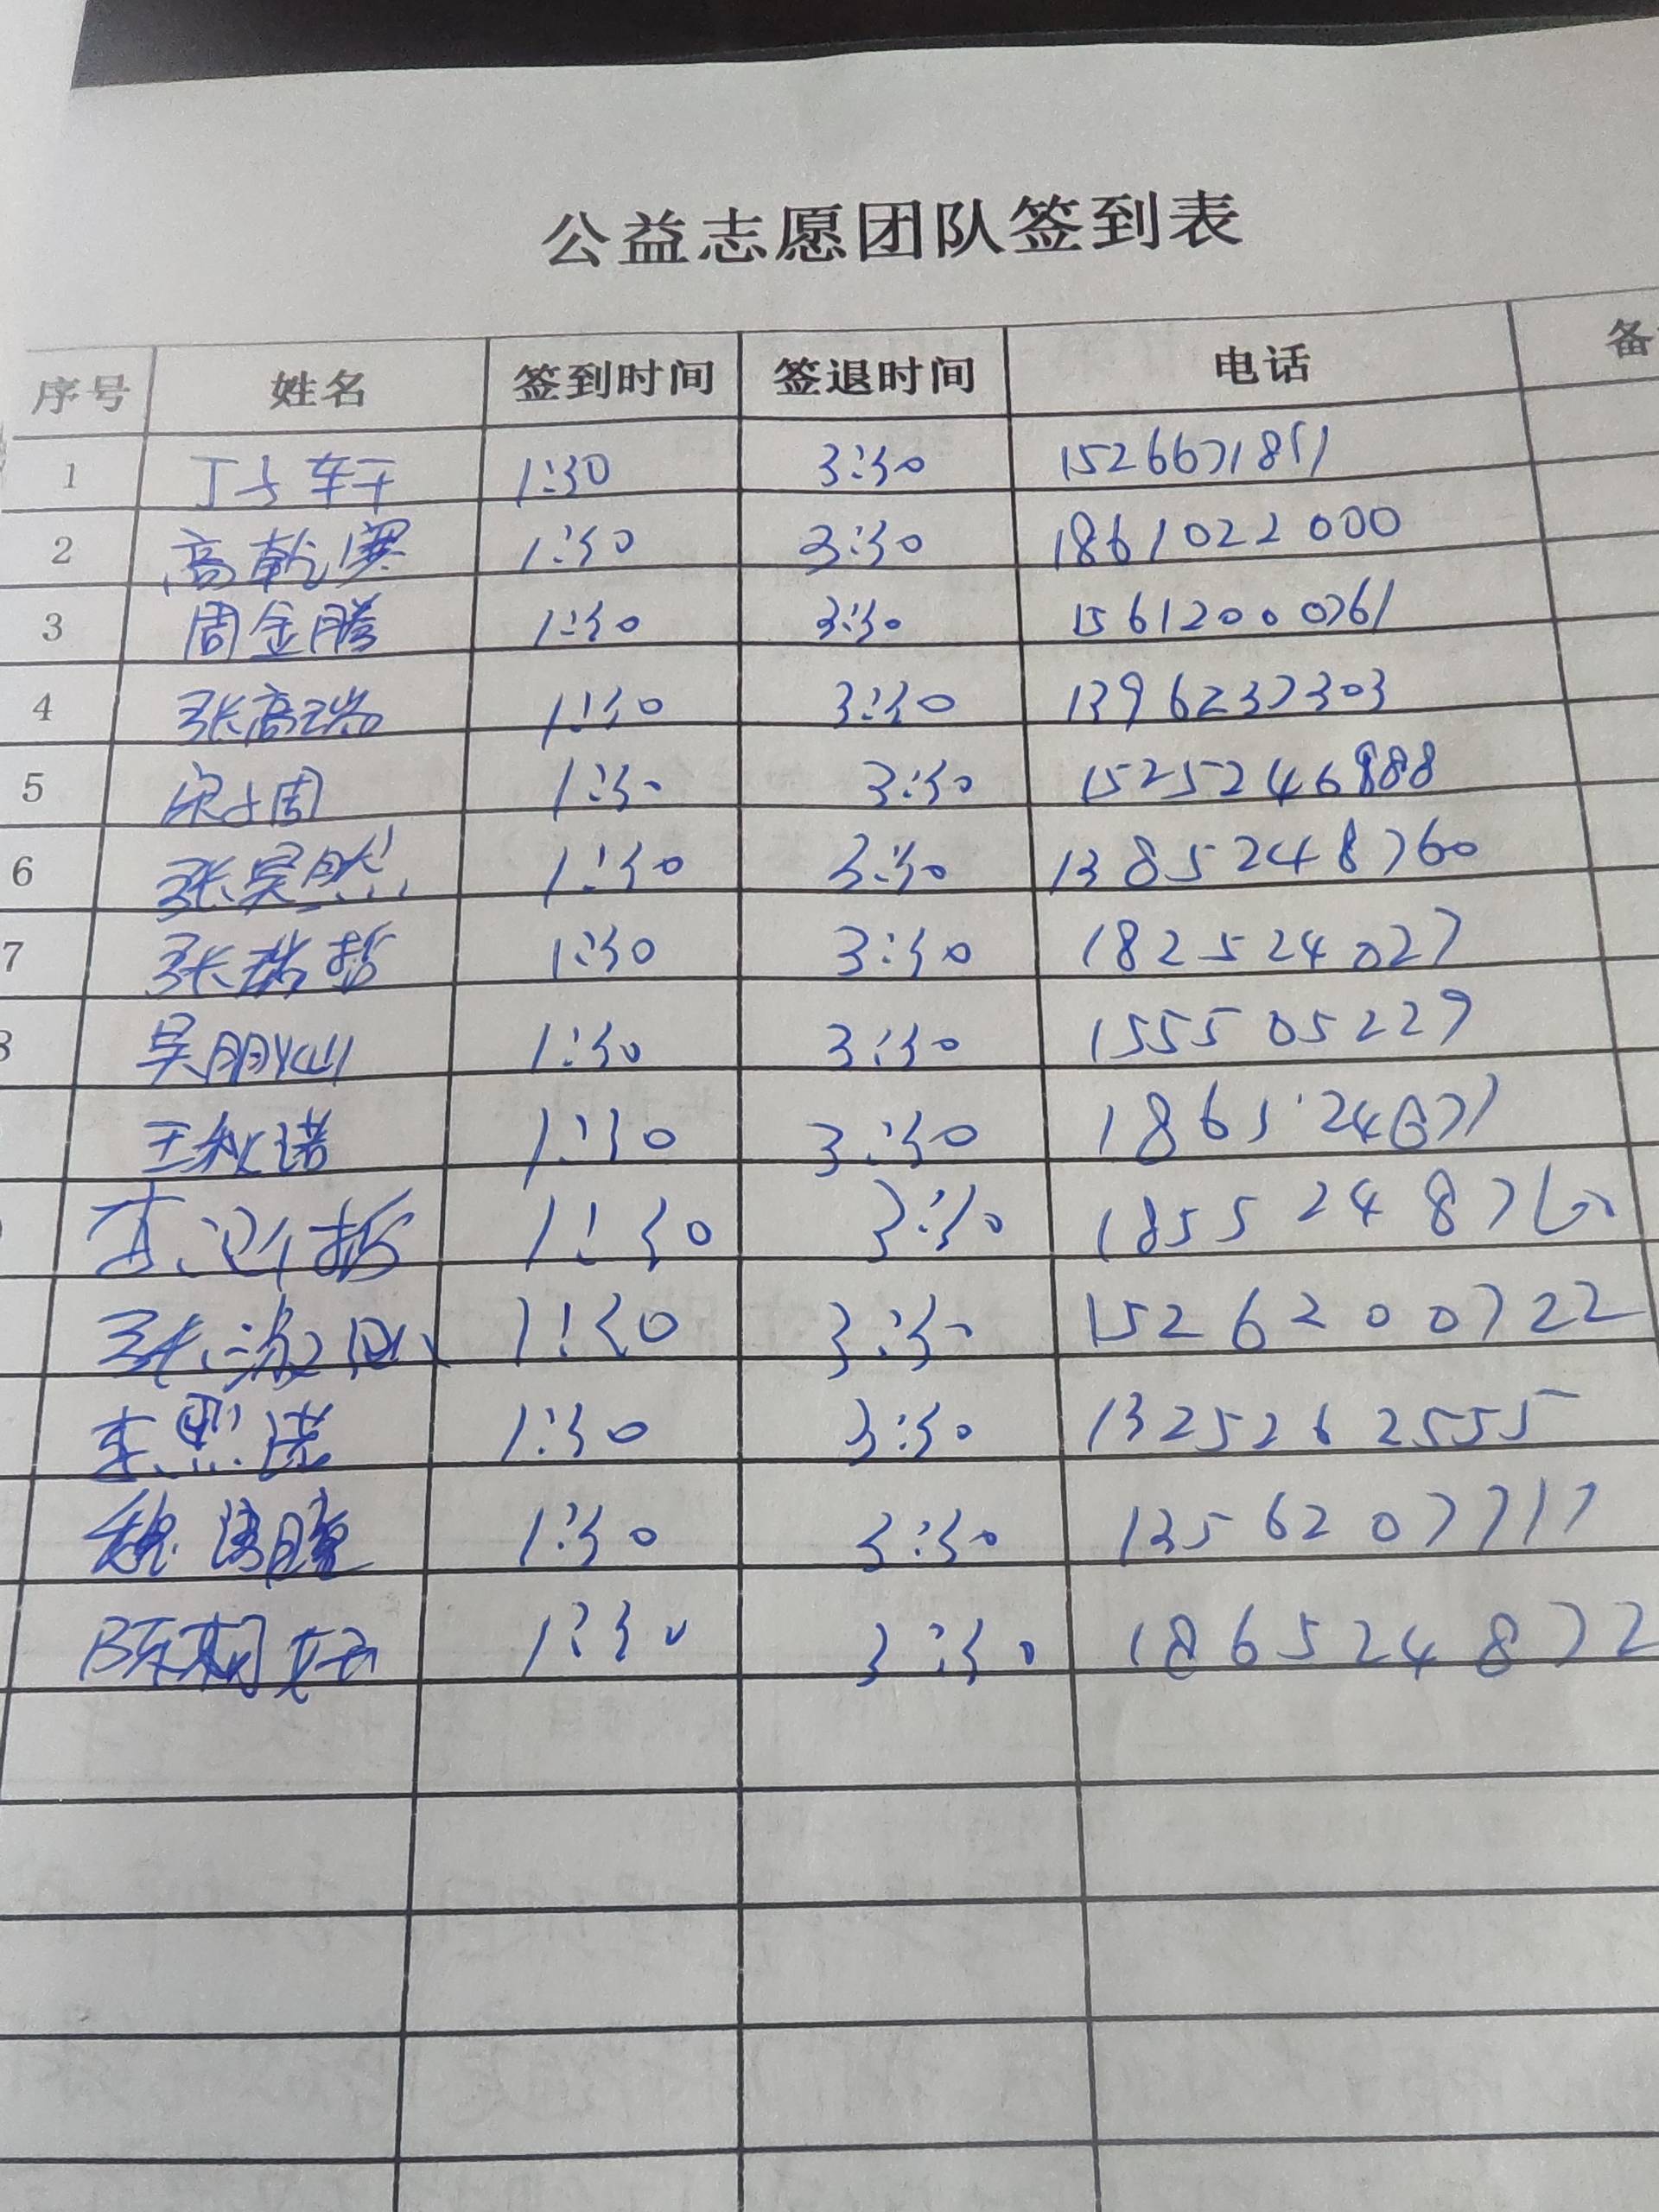 公益志愿团队签到表
序号 姓名 签到时间 签退时间 电话 备
1 丁子轩 1:30 3:30 1526671851
2 高乾 1:30 3:30 1861022000
3 周金腾 1:30 3:30 15612000761
4 张高瑞 1:30 3:30 1396237303
5 宋子周 1:30 3:30 15252246888
6 张昊然 1:30 3:30 13852248760
7 张瑞哲 1:30 3:30 182524027
吴朋灿 1:30 3:30 155505227
王秋诺 1:30 3:30 186524671
李沂哲 1:30 3:30 1855248760
张 1:30 3:30 1526200722
李熙诺 1:30 3:30 13252622555
魏 腾 1:30 3:30 13562077717
陈柯妤 1:30 3:30 186524872